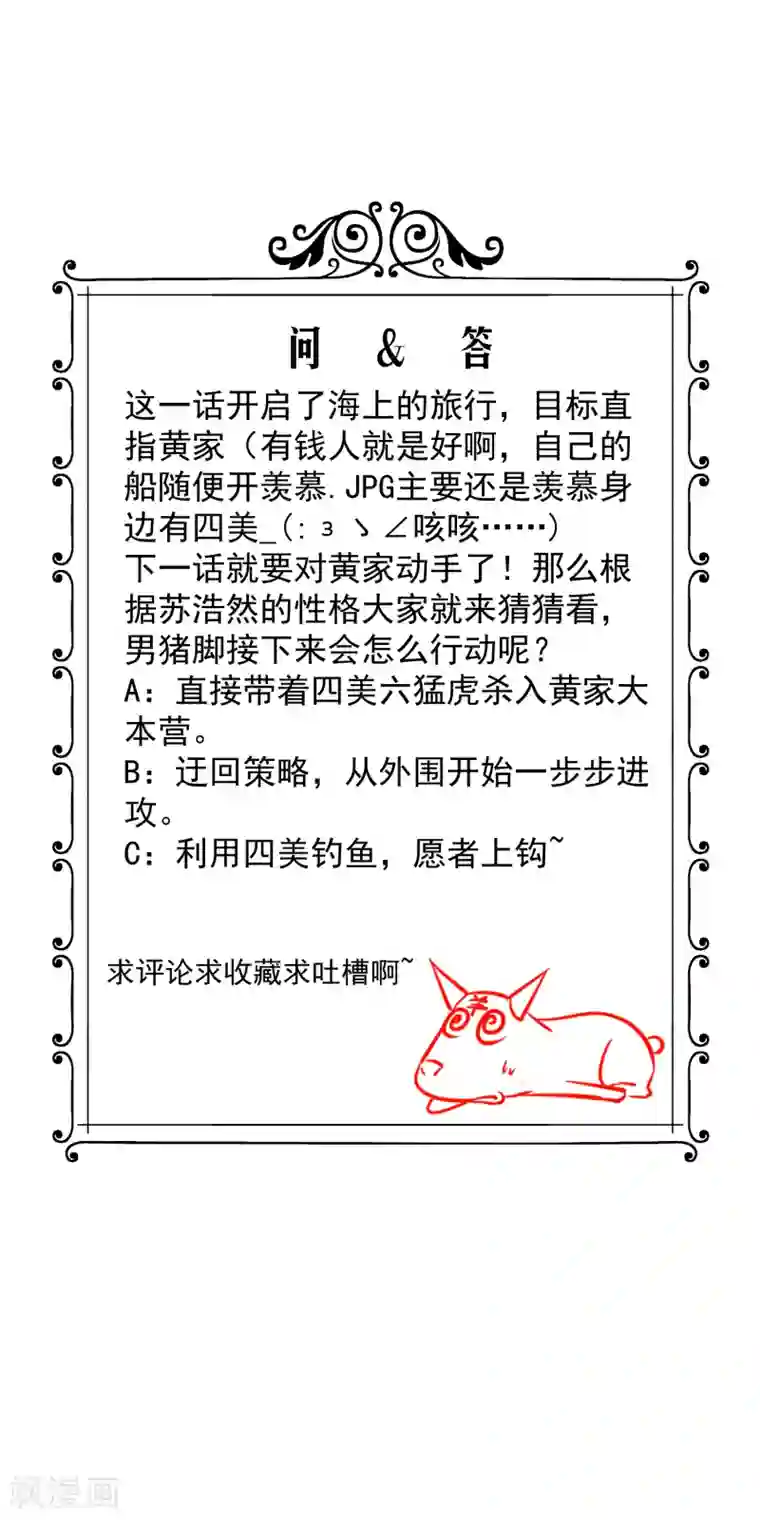 问 & 答
这一话开启了海上的旅行，目标直
指黄家（有钱人就是好啊，自己的
船随便开羡慕.JPG主要还是羡慕身
边有四美_(:з ゝ∠咳咳……)
下一话就要对黄家动手了！那么根
据苏浩然的性格大家就来猜猜看，
男猪脚接下来会怎么行动呢？
A：直接带着四美六猛虎杀入黄家大
本营。
B：迂回策略，从外围开始一步步进
攻。
C：利用四美钓鱼，愿者上钩~
求评论求收藏求吐槽啊~
飒漫画